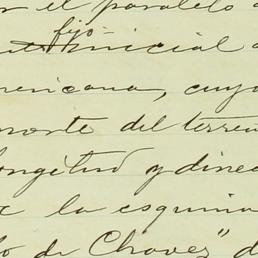 r el paralelo
fijo
inicial
ericana, cuya
norte del terre
ongitud y direc
a la esquina
o de Chaves" d